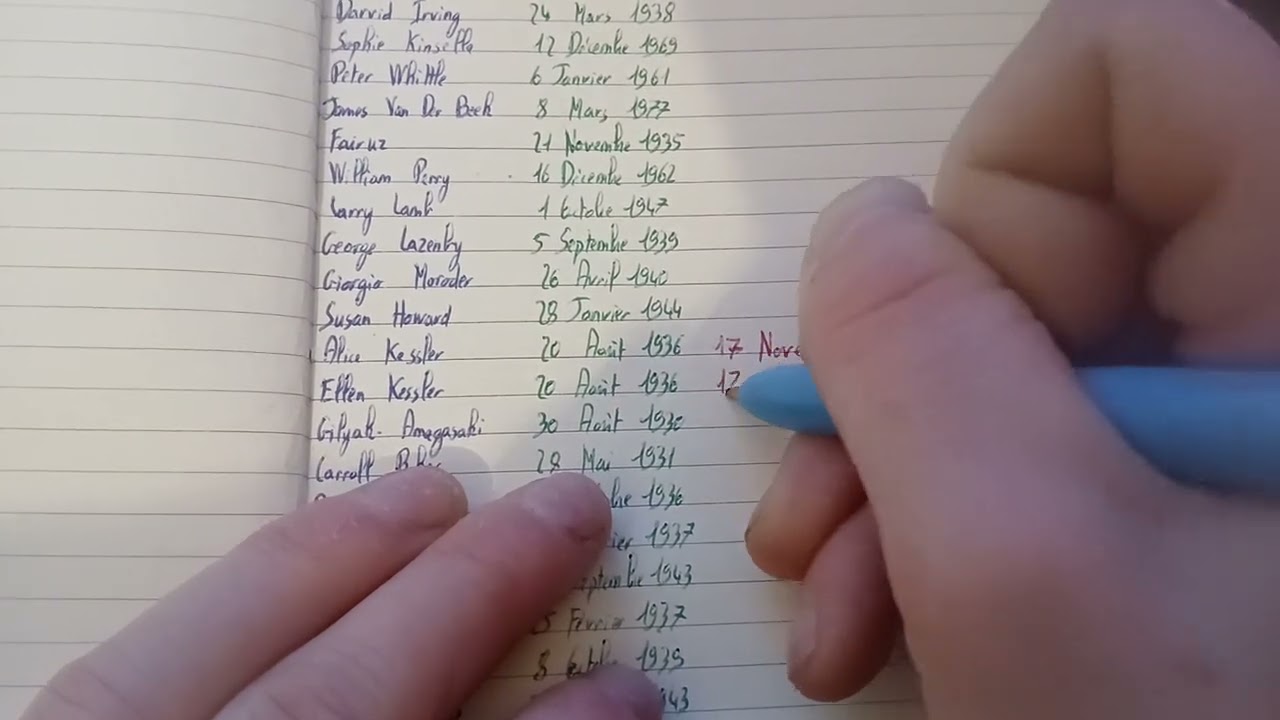 Darvid Irving 24 Mars 1938
Sophie Kinsella 12 Décembre 1969
Peter Whittle 6 Janvier 1961
James Van Der Beek 8 Mars 1977
Fairuz 21 Novembre 1935
William Perry 16 Décembre 1962
Larry Lamb 1 Octobre 1947
George Lazenby 5 Septembre 1939
Giorgio Moroder 26 Avril 1940
Susan Howard 28 Janvier 1944
Alice Kessler 20 Août 1936 17 Nove
Ellen Kessler 20 Août 1936 17
Gilyak Amagasaki 30 Août 1930
Carroll 28 Mai 1931
bre 1936
ier 1937
eptembre 1943
5 Février 1937
8 Octobre 1939
943